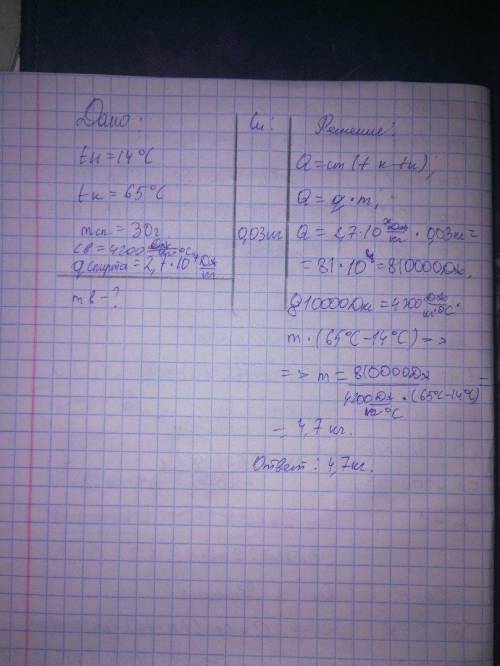 Дано:
tн = 14°C
tк = 65°C
mсп = 30г
cв = 4200 Дж/кг·°C
qспирта = 2,7·10⁴ Дж/m
mв - ?
Си:
0,03кг
Решение:
Q = cm(tк - tн);
Q = q·m;
Q = 2,7·10 Дж/кг · 0,03кг =
= 81·10⁴ = 810000Дж.
810000Дж = 4200 Дж/кг·°C ·
m·(65°C - 14°C) =>
=> m = 810000Дж / 4200 Дж/кг·°C · (65°C - 14°C) =
= 4,7кг.
Ответ: 4,7кг.